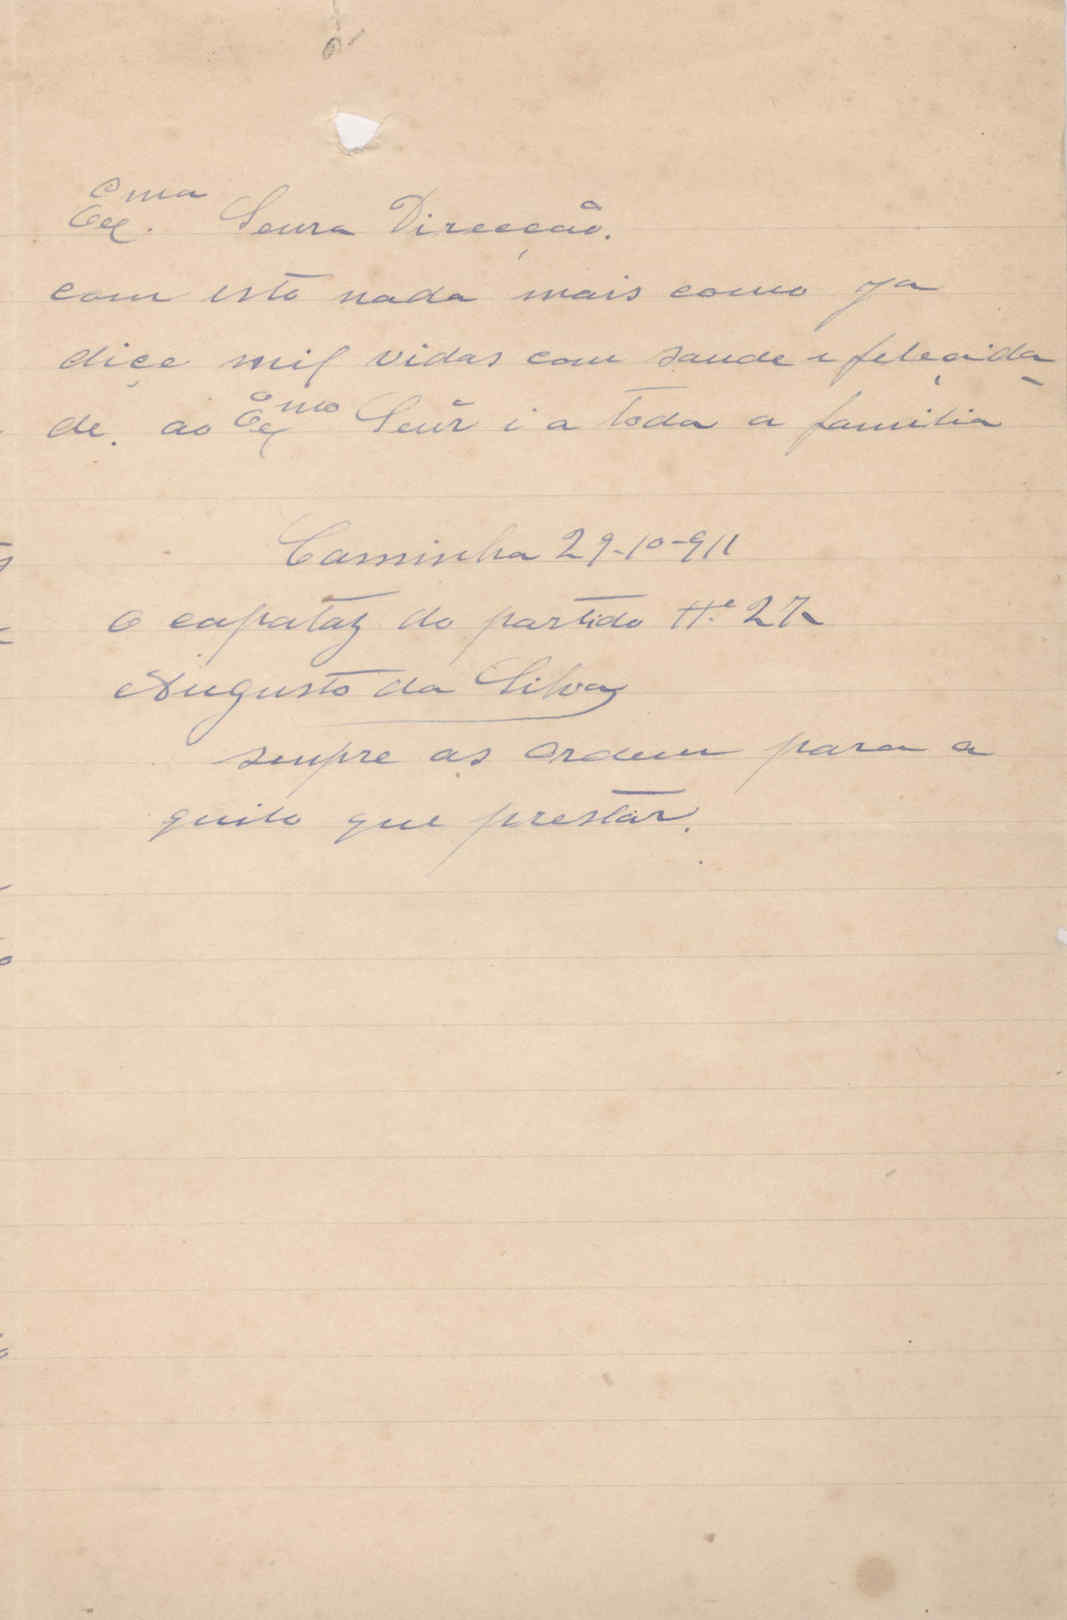 Exma. Senra Direcção.
com isto nada mais como ja
diçe mil vidas com saude e feleçida
de. ao Exmo Senr i a toda a familia
Caminha 29-10-911
O capataz do partido Nº 27
Augusto da Silva
senpre as ordem para a
quilo que prestar.